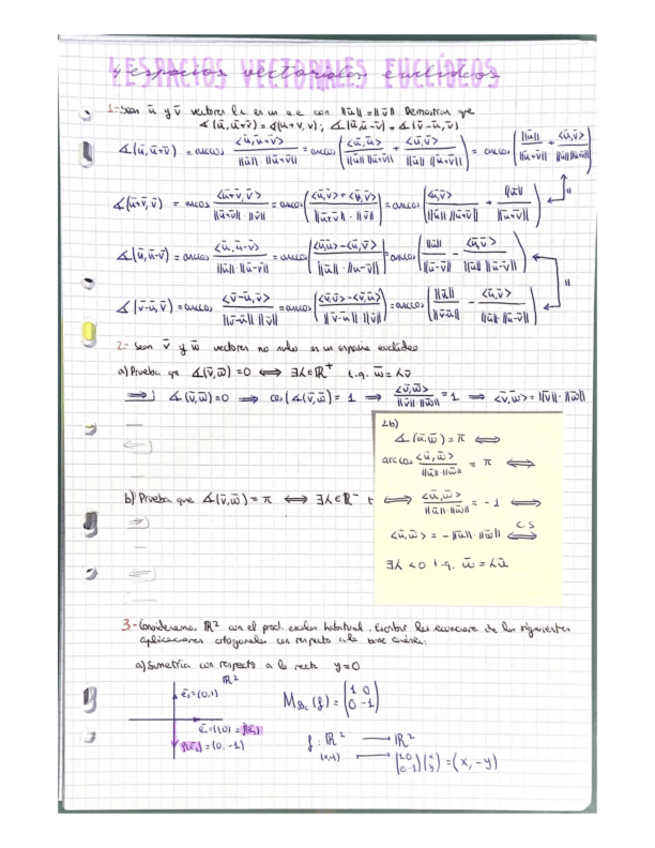 4 ESPACIOS VECTORIALES EUCLÍDEOS
4-espacios vectoriales euclídeos
1- Sean ū y v̄ vectores l.i. en un e.e con ||ū|| = ||v̄|| Demostrar que
∡(ū, ū+v̄) = ∡(u+v, v) ; ∡(ū, ū-v̄) = ∡(v̄-ū, v̄)
∡(ū, ū+v̄) = arccos <ū, ū+v̄> / ||ū||·||ū+v̄|| = arccos( <ū,ū> / ||ū|| ||ū+v̄|| + <ū,v̄> / ||ū|| ||ū+v̄|| ) = arccos( ||ū|| / ||ū+v̄|| + <ū,v̄> / ||ū|| ||ū+v̄|| )
∡(ū+v̄, v̄) = arccos <ū+v̄, v̄> / ||ū+v̄||·||v̄|| = arccos( <ū,v̄> + <v̄,v̄> / ||ū+v̄||·||v̄|| ) = arccos( <ū,v̄> / ||ū|| ||ū+v̄|| + ||ū|| / ||ū+v̄|| ) "
∡(ū, ū-v̄) = arccos <ū, ū-v̄> / ||ū||·||ū-v̄|| = arccos( <ū,ū> - <ū,v̄> / ||ū||·||u-v̄|| ) = arccos( ||ū|| / ||ū-v̄|| - <ū,v̄> / ||ū|| ||ū-v̄|| )
∡(v̄-ū, v̄) = arccos <v̄-ū, v̄> / ||v̄-ū||·||v̄|| = arccos( <v̄,v̄> - <v̄,ū> / ||v̄-ū||·||v̄|| ) = arccos( ||ū|| / ||v̄-ū|| - <ū,v̄> / ||ū||·||ū-v̄|| ) "
2- Sean v̄ y w̄ vectores no nulos en un espacio euclídeo
a) Prueba que ∡(v̄,w̄) = 0 ⟺ ∃λ∈ℝ⁺ t.q. w̄ = λv̄
⟹) ∡(v̄,w̄) = 0 ⟹ cos(∡(v̄,w̄) = 1 ⟹ <v̄,w̄> / ||v̄||·||w̄|| = 1 ⟹ <v̄,w̄> = ||v̄||·||w̄||
⟸)
b) Prueba que ∡(v̄,w̄) = π ⟺ ∃λ∈ℝ⁻ t
⟹)
⟸)
2b)
∡(ū,w̄) = π ⟺
arccos <ū,w̄> / ||ū||·||w̄|| = π ⟺
⟺ <ū,w̄> / ||ū||·||w̄|| = -1 ⟺
<ū,w̄> = -||ū||·||w̄|| ⟺ C.S
∃λ<0 t.q. w̄ = λū
3- Consideramos ℝ² con el prod. escalar habitual. Escribir las ecuaciones de las siguientes
aplicaciones ortogonales con respecto a la base canónica:
a) Simetría con respecto a la recta y=0
ℝ²
ē₂=(0,1)
ē₁=(1,0) = f(ē₁)
f(ē₂) = (0,-1)
M_Bc (f) = (1 0 / 0 -1)
f: ℝ² ⟶ ℝ²
(x,y) ⟼ (1 0 / 0 -1)(x / y) = (x, -y)